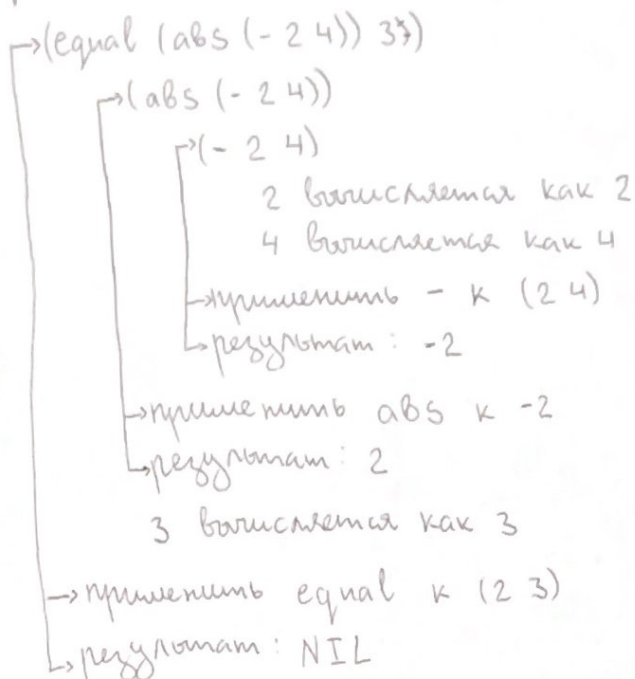 (equal (abs (- 2 4)) 3)
(abs (- 2 4))
(- 2 4)
2 вычисляется как 2
4 вычисляется как 4
применить - к (2 4)
результат: -2
применить abs к -2
результат: 2
3 вычисляется как 3
применить equal к (2 3)
результат: NIL